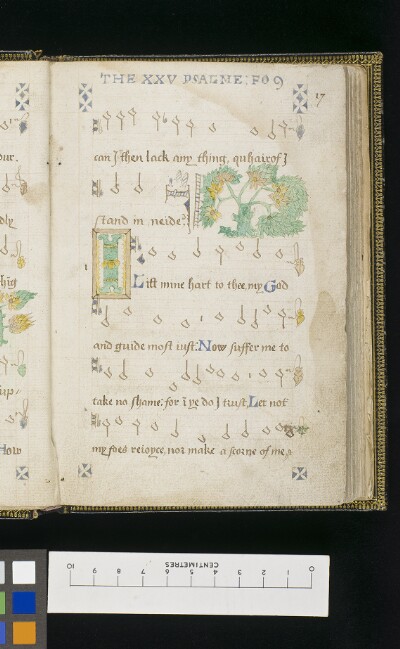 THE XXV PSALNE: FO 9
17
can I then lack any thing, quhairof I
stand in neide?
I Lift mine hart to thee my God
and guide most iust: Now suffer me to
take no shame: for ī ye do I trust. Let not
my foes reioyce, nor make a scorne of me.
our.
dly
hig
up/
How
10 9 8 7 6 5 4 3 2 1 0
CENTIMETRES